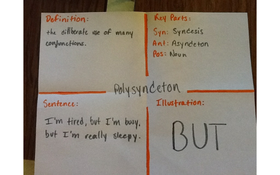 Definition:
the deliberate use of many
conjunctions.
Key Parts:
Syn: Syndesis
Ant: Asyndeton
Pos: Noun
Polysyndeton
Sentence:
I'm tired, but I'm busy,
but I'm really sleepy.
Illustration:
BUT